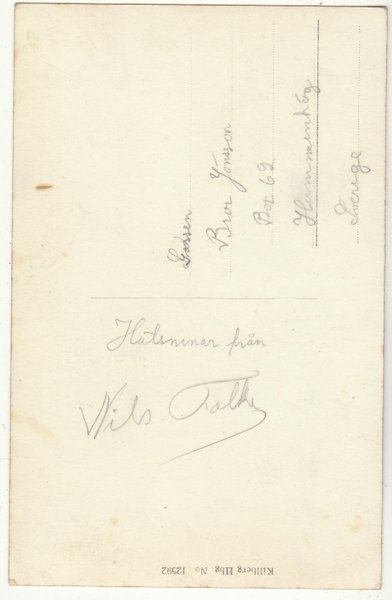 Gossen
Bror Jönsson
Box 62
Hammenhög
Sverige
Hälsninar från
Nils Falk
Killberg Hbg. No 12592